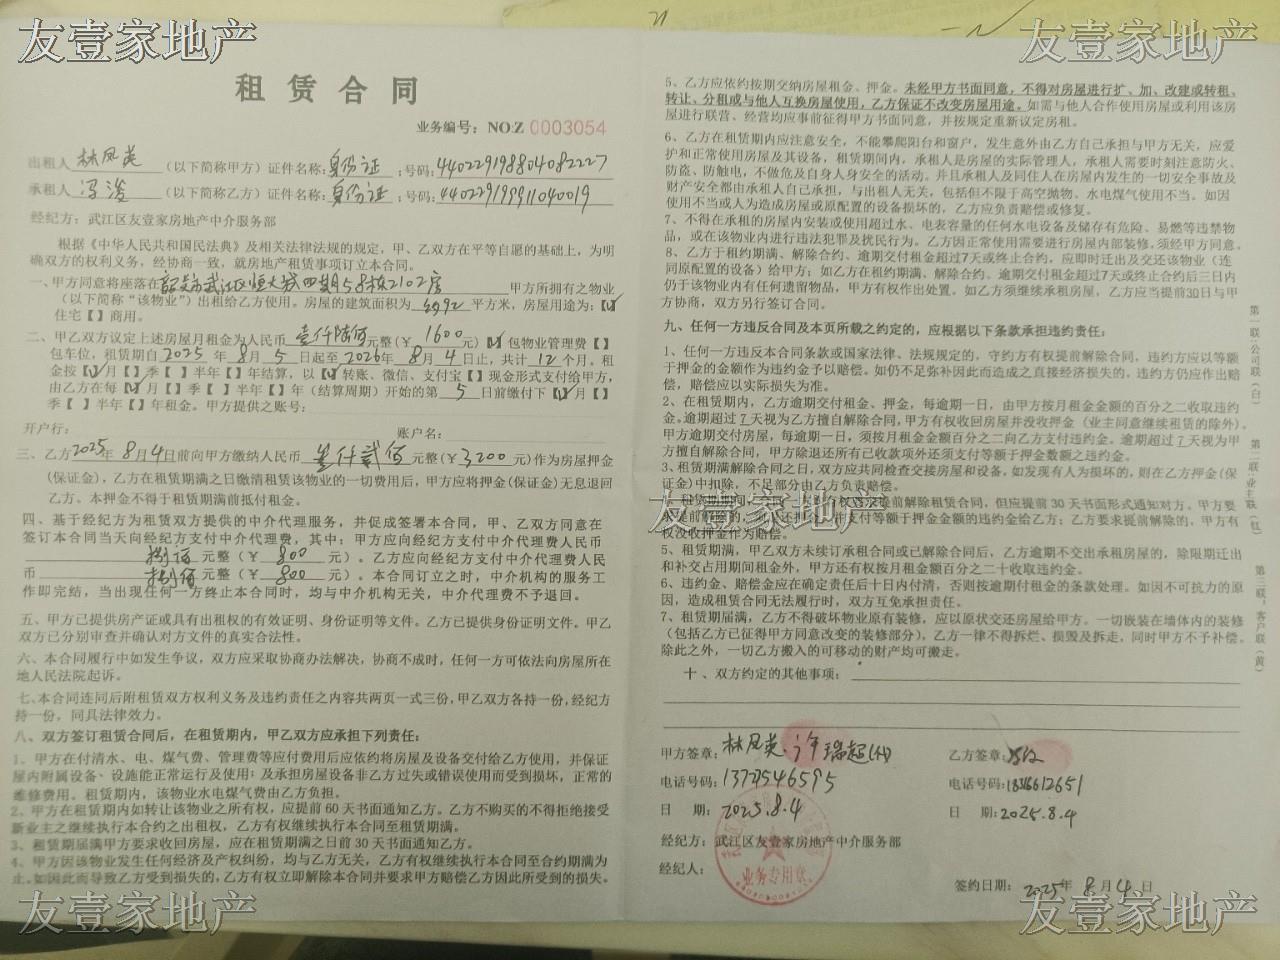 友壹家地产
友壹家地产
租赁合同
业务编号：NO:Z 0003054
出租人 林凤英 （以下简称甲方）证件名称：身份证 ；号码：440229198804082227
承租人 冯浚 （以下简称乙方）证件名称：身份证 ；号码：440229199911040019
经纪方：武江区友壹家房地产中介服务部
根据《中华人民共和国民法典》及相关法律法规的规定，甲、乙双方在平等自愿的基础上，为明
确双方的权利义务，经协商一致，就房地产租赁事项订立本合同。
一、甲方同意将座落在 韶关市武江区恒大城四期58栋2102房 甲方所拥有之物业
（以下简称“该物业”）出租给乙方使用。房屋的建筑面积为 约92 平方米，房屋用途为：【√】
住宅【 】商用。
二、甲乙双方议定上述房屋月租金为人民币 壹仟陆佰 元整（￥ 1600 元）【√】包物业管理费【 】
包车位，租赁期自 2025 年 8 月 5 日起至 2026 年 8 月 4 日止，共计 12 个月。租
金按【√】月【 】季【 】半年【 】年结算，以【√】转账、微信、支付宝【 】现金形式支付给甲方，
由乙方在每【√】月【 】季【 】半年【 】年（结算周期）开始的第 5 日前缴付下【√】月【 】
季【 】半年【 】年租金。甲方提供之账号：
开户行： 账户名：
三、乙方 2025 年 8 月 4 日前向甲方缴纳人民币 叁仟贰佰 元整（￥ 3200 元）作为房屋押金
（保证金），乙方在租赁期满之日缴清租赁该物业的一切费用后，甲方应将押金（保证金）无息退回
乙方。本押金不得于租赁期满前抵付租金。
四、基于经纪方为租赁双方提供的中介代理服务，并促成签署本合同，甲、乙双方同意在
签订本合同当天向经纪方支付中介代理费，其中：甲方应向经纪方支付中介代理费人民币
捌佰 元整（￥ 800 元）。乙方应向经纪方支付中介代理费人民
币 捌佰 元整（￥ 800 元）。本合同订立之时，中介机构的服务工
作即完结，当出现任何一方终止本合同时，均与中介机构无关，中介代理费不予退回。
五、甲方已提供房产证或具有出租权的有效证明、身份证明等文件。乙方已提供身份证明文件。甲乙
双方已分别审查并确认对方文件的真实合法性。
六、本合同履行中如发生争议，双方应采取协商办法解决，协商不成时，任何一方可依法向房屋所在
地人民法院起诉。
七、本合同连同后附租赁双方权利义务及违约责任之内容共两页一式三份，甲乙双方各持一份，经纪方
持一份，同具法律效力。
八、双方签订租赁合同后，在租赁期内，甲乙双方应承担下列责任：
1、甲方在付清水、电、煤气费、管理费等应付费用后应依约将房屋及设备交付给乙方使用，并保证
屋内附属设备、设施能正常运行及使用；及承担房屋设备非乙方过失或错误使用而受到损坏，正常的
维修费用。租赁期内，该物业水电煤气费由乙方负担。
2、甲方在租赁期内如转让该物业之所有权，应提前60天书面通知乙方。乙方不购买的不得拒绝接受
新业主之继续执行本合约之出租权，乙方有权继续执行本合同至租赁期满。
3、租赁期届满甲方要求收回房屋，应在租赁期满之日前30天书面通知乙方。
4、甲方因该物业发生任何经济及产权纠纷，均与乙方无关，乙方有权继续执行本合同至合约期满为
止。如因此而导致乙方受到损失的，乙方有权立即解除本合同并要求甲方赔偿乙方因此所受到的损失。
5、乙方应依约按期交纳房屋租金、押金。未经甲方书面同意，不得对房屋进行扩、加、改建或转租、
转让、分租或与他人互换房屋使用，乙方保证不改变房屋用途。如需与他人合作使用房屋或利用该房
屋进行联营、经营均应事前征得甲方书面同意，并按规定重新议定房租。
6、乙方在租赁期内应注意安全，不能攀爬阳台和窗户，发生意外由乙方自己承担与甲方无关，应爱
护和正常使用房屋及其设备，租赁期间内，承租人是房屋的实际管理人，承租人需要时刻注意防火、
防盗、防触电，不做危及自身人身安全的活动。并且承租人及同住人在房屋内发生的一切安全事故及
财产安全都由承租人自己承担，与出租人无关，包括但不限于高空抛物、水电煤气使用不当。如因
使用不当或人为造成房屋或原配置的设备损坏的，乙方应负责赔偿或修复。
7、不得在承租的房屋内安装或使用超过水、电表容量的任何水电设备及储存有危险、易燃等违禁物
品，或在该物业内进行违法犯罪及扰民行为。乙方因正常使用需要进行房屋内部装修，须经甲方同意。
8、乙方于租约期满、解除合约、逾期交付租金超过7天或终止合约，应即时迁出及交还该物业（连
同原配置的设备）给甲方；如乙方在租约期满、解除合约、逾期交付租金超过7天或终止合约后三日内
仍于该物业内有任何遗留物品，甲方有权作出处置。如乙方须继续承租房屋，乙方应当提前30日与甲
方协商，双方另行签订合同。
九、任何一方违反合同及本页所载之约定的，应根据以下条款承担违约责任：
1、任何一方违反本合同条款或国家法律、法规规定的，守约方有权提前解除合同，违约方应以等额
于押金的金额作为违约金予以赔偿。如仍不足弥补因此而造成之直接经济损失的，违约方仍应作出赔
偿，赔偿应以实际损失为准。
2、在租赁期内，乙方逾期交付租金、押金，每逾期一日，由甲方按月租金金额的百分之二收取违约
金。逾期超过 7 天视为乙方擅自解除合同，甲方有权收回房屋并没收押金（业主同意继续租赁的除外）。
甲方逾期交付房屋，每逾期一日，须按月租金金额百分之二向乙方支付违约金。逾期超过 7 天视为甲
方擅自解除合同，甲方除退还所有己收款项外还须支付等额于押金数额之违约金。
3、租赁期满解除合同之日，双方应共同检查交接房屋和设备，如发现有人为损坏的，则在乙方押金（保
证金）中扣除，不足部分由乙方负责赔偿。
友壹家地产
租赁期间 有权 提前解除租赁合同，但应提前30天书面形式通知对方。甲方要
求提前解除的，应退还押金，并支付等额于押金金额的违约金给乙方；乙方要求提前解除的，甲方有
权没收押金作为赔偿。
5、租赁期满，甲乙双方未续订承租合同或已解除合同后，乙方逾期不交出承租房屋的，除限期迁出
和补交占用期间租金外，甲方还有权按月租金百分之二十收取违约金。
6、违约金、赔偿金应在确定责任后十日内付清，否则按逾期付租金的条款处理。如因不可抗力的原
因，造成租赁合同无法履行时，双方互免承担责任。
7、租赁期届满，乙方不得破坏物业原有装修，应以原状交还房屋给甲方。一切嵌装在墙体内的装修
（包括乙方已征得甲方同意改变的装修部分），乙方一律不得拆烂、损毁及拆走，同时甲方不予补偿。
除此之外，一切乙方搬入的可移动的财产均可搬走。
十、双方约定的其他事项：
甲方签章：林凤英 许瑞超(代) 乙方签章：冯浚
电话号码：13727546595 电话号码：18316612651
日 期：2025.8.4 日 期：2025.8.4
经纪方：武江区友壹家房地产中介服务部
经纪人：
业务专用章
签约日期：2025年 8月 4日
第一联：公司联（白）
第二联：业主联（红）
第三联：客户联（黄）
友壹家地产
友壹家地产